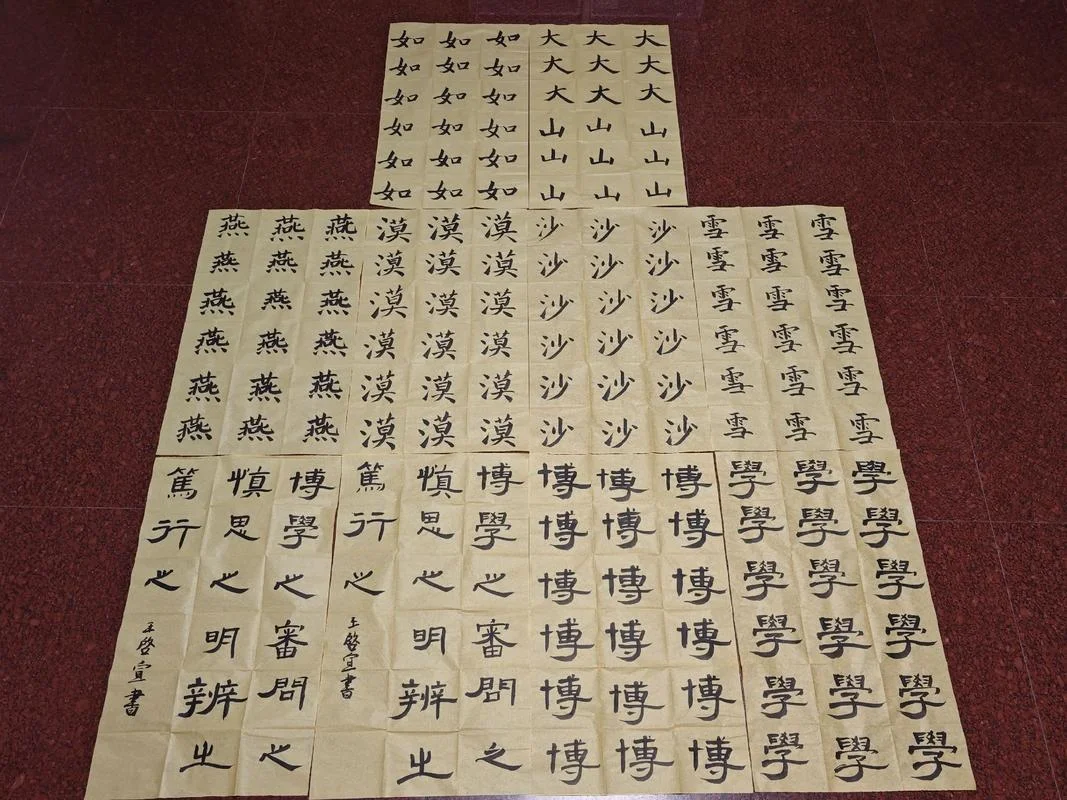 大大大山山山
大大大山山山
大大大山山山
如如如如如如
如如如如如如
如如如如如如
雪雪雪雪雪雪
雪雪雪雪雪雪
雪雪雪雪雪雪
沙沙沙沙沙沙
沙沙沙沙沙沙
沙沙沙沙沙沙
漠漠漠漠漠漠
漠漠漠漠漠漠
漠漠漠漠漠漠
燕燕燕燕燕燕
燕燕燕燕燕燕
燕燕燕燕燕燕
學學學學學學
學學學學學學
學學學學學學
博博博博博博
博博博博博博
博博博博博博
博學之審問之
慎思之明辨之
篤行之
王啓宣書
博學之審問之
慎思之明辨之
篤行之
王啓宣書